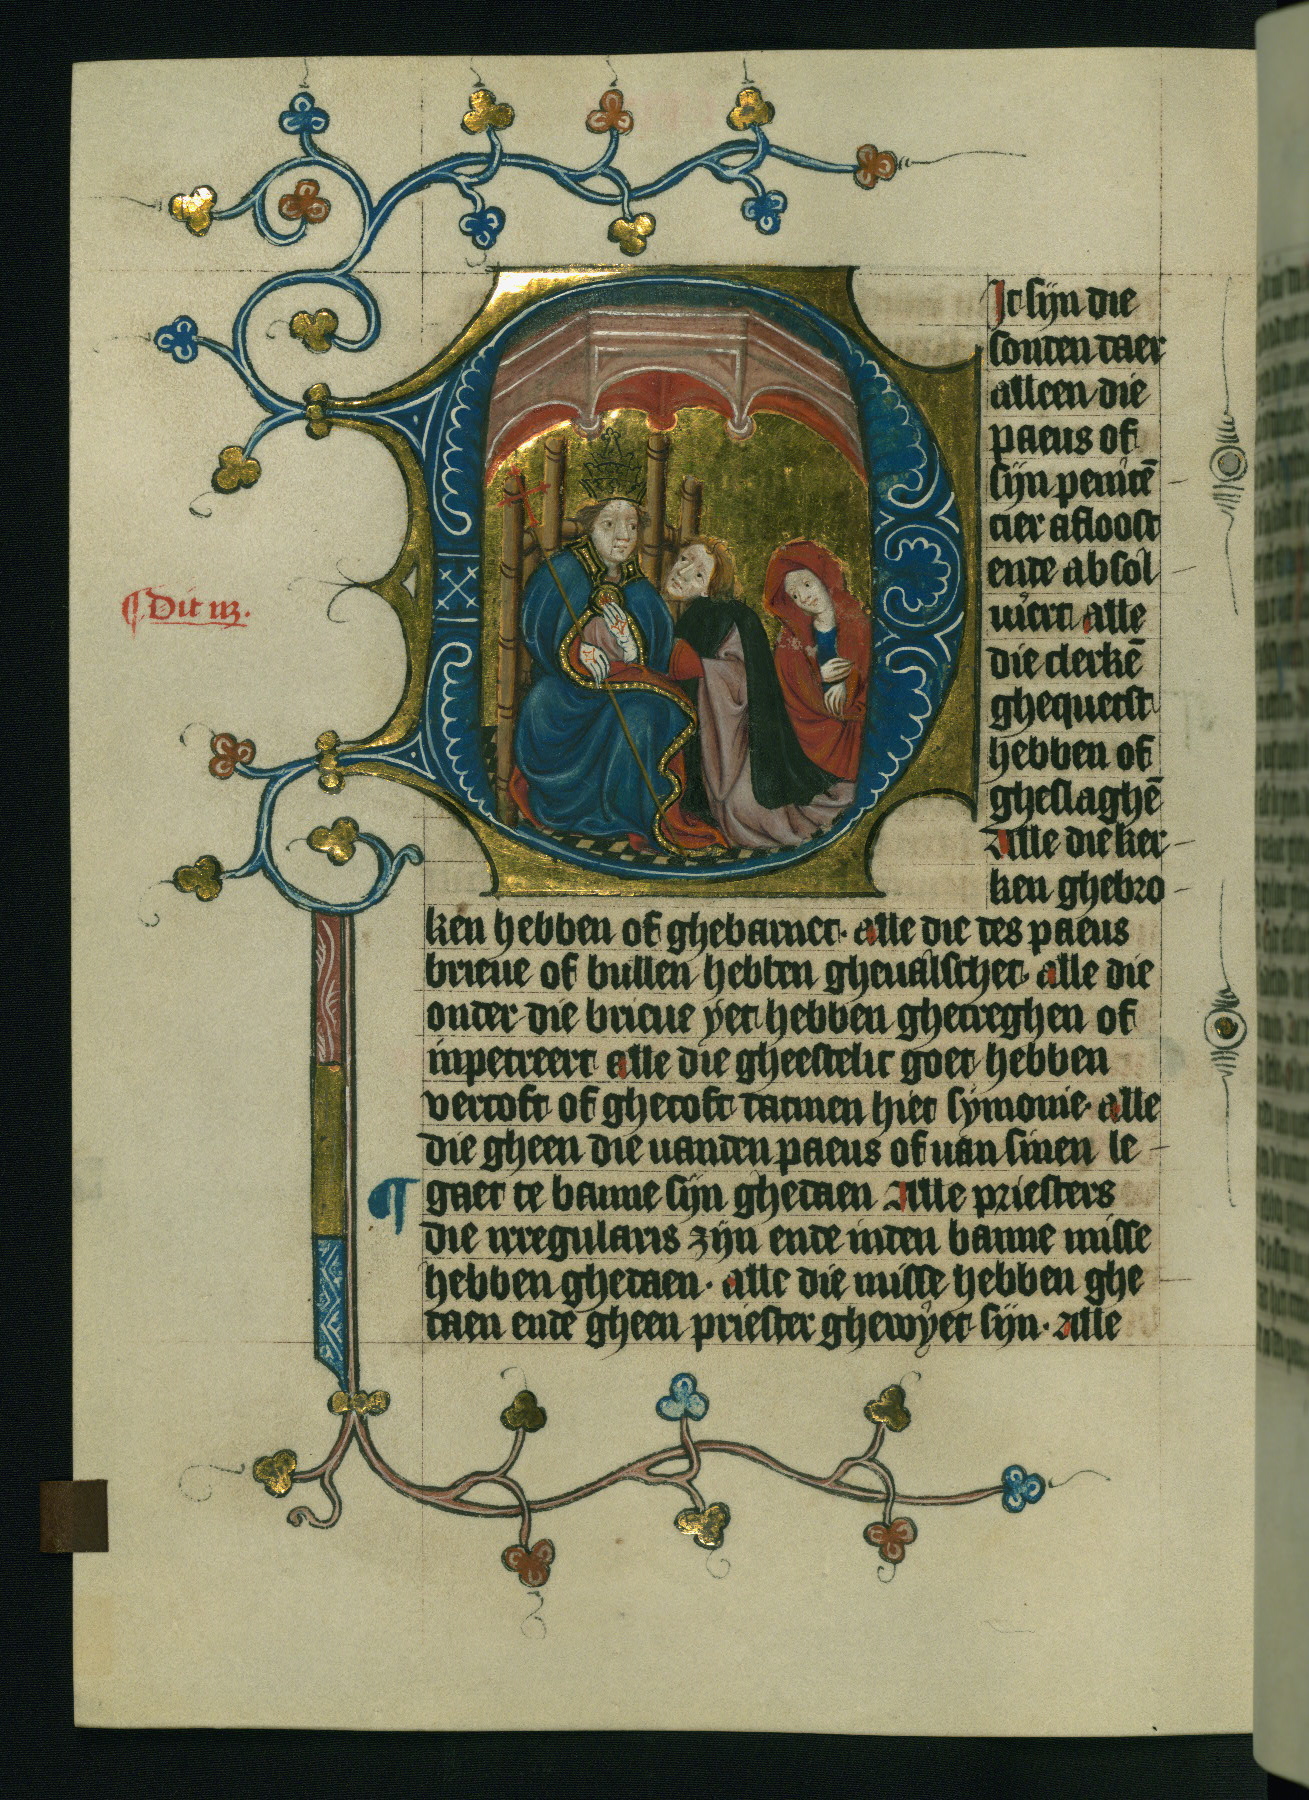 ¶ Dit iɜ.
D
It sijn die
sonten daer
alleen die
paeus of
sijn peniтē
cier afloost
ende absol
uiert alle
die clerkē
ghequetst
hebben of
gheslaghē
Alle die ker
ken ghebro
ken hebben of ghebarnet· alle die des paeus
brieue of bullen hebben gheualschet· alle die
onder die brieue yet hebben ghecreghen of
inpetreert alle die gheestelic goet hebben
vercoft of ghecoft datmen hiet symonie· alle
die gheen die uanden paeus of uan sinen le
¶ gaet te banne sijn ghedaen Alle priesters
die irregularis zijn ende inden banne misse
hebben ghedaen· alle die misse hebben ghe
daen ende gheen priester ghewyet sijn· Alle